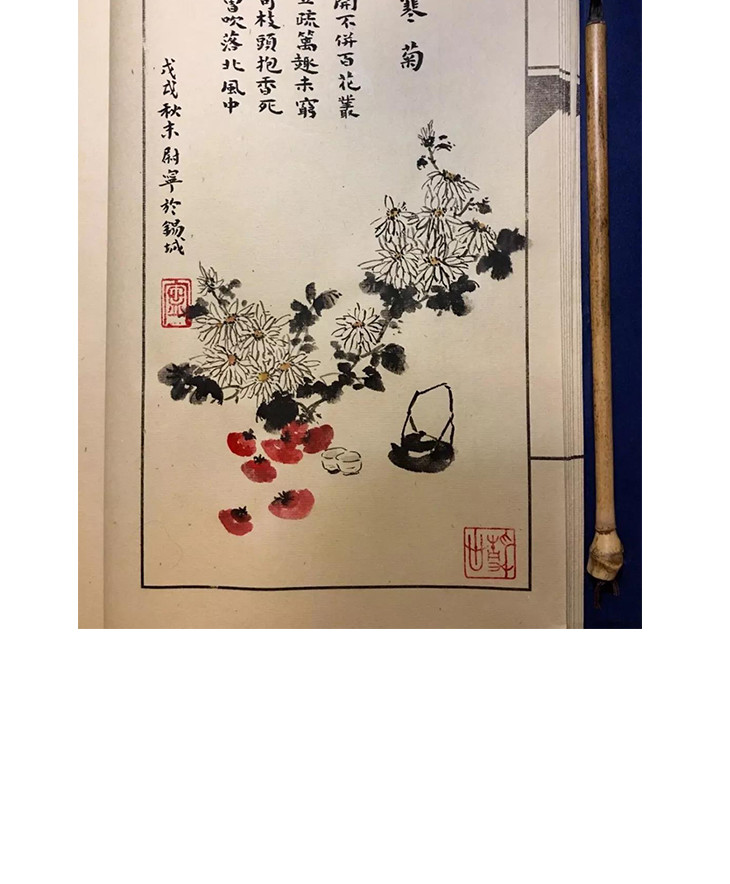 寒菊
開不併百花叢
立疏篱趣未窮
可枝頭抱香死
曾吹落北風中
戊戌秋末尉寧於錫城